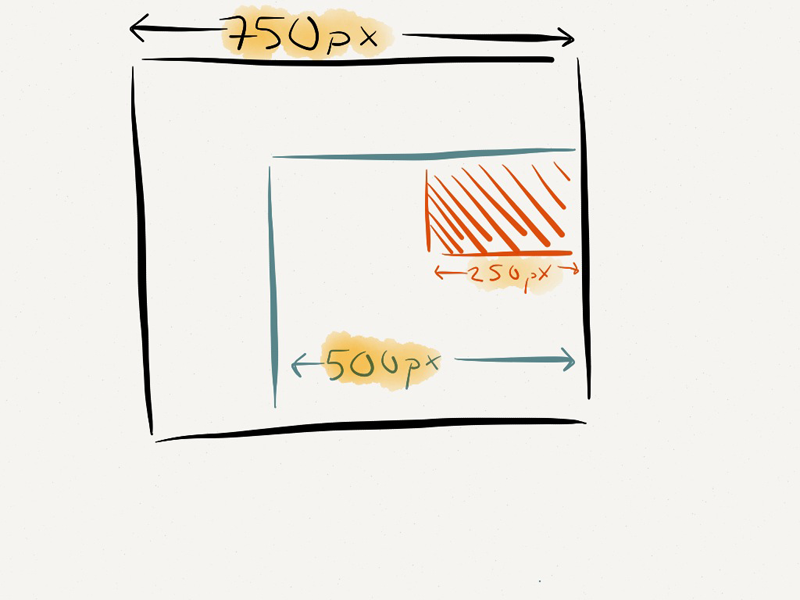 750px
250px
500px